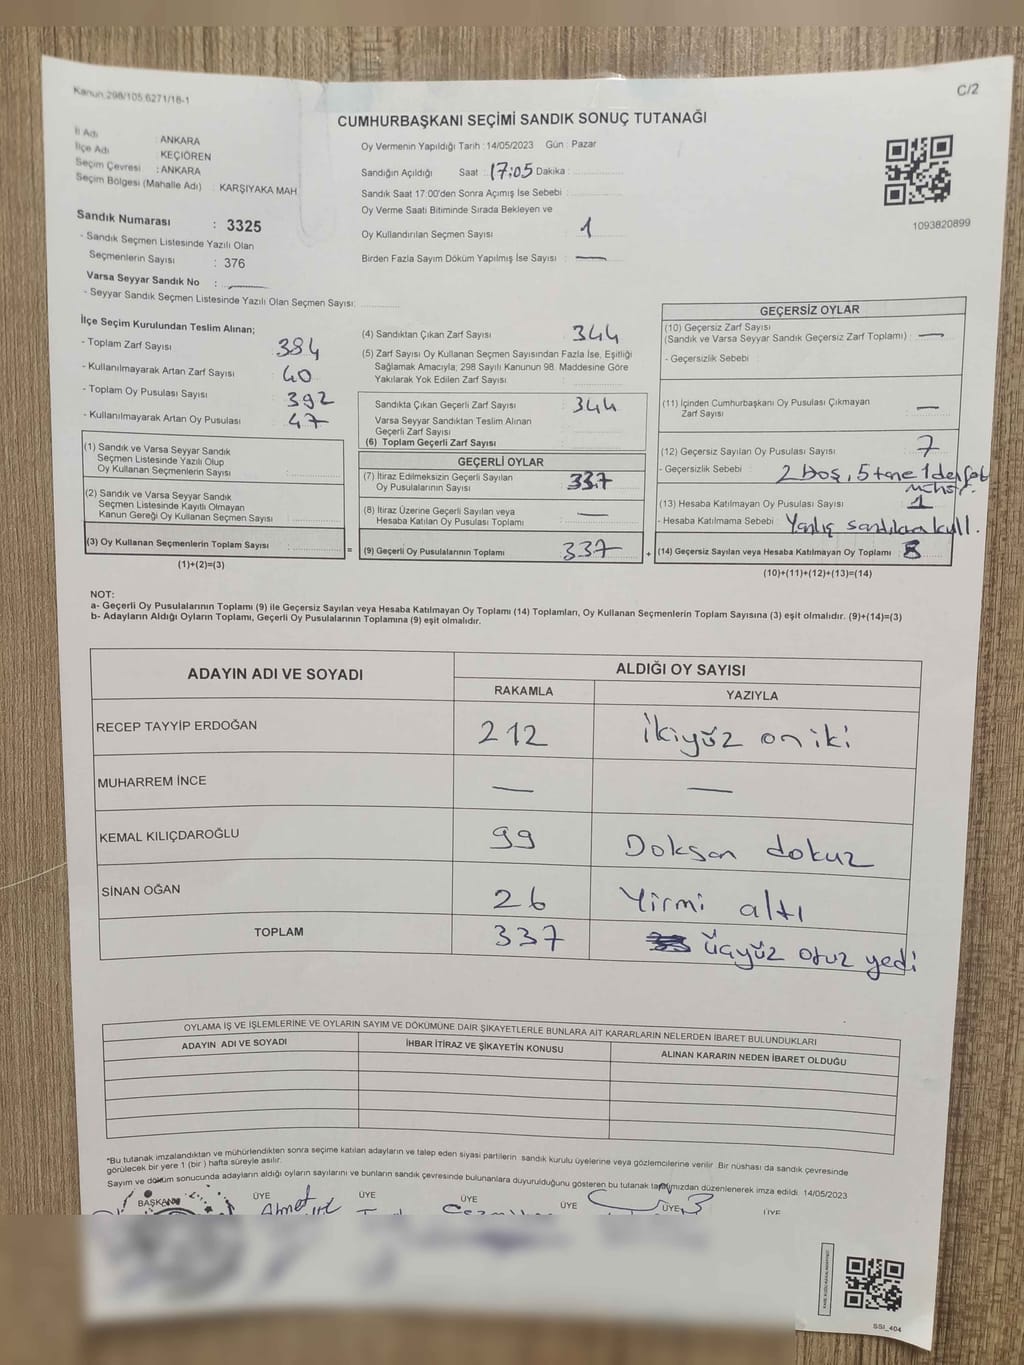 Kanun 298/105 6271/18-1
C/2
CUMHURBAŞKANI SEÇİMİ SANDIK SONUÇ TUTANAĞI
İl Adı : ANKARA
İlçe Adı : KEÇİÖREN
Seçim Çevresi : ANKARA
Seçim Bölgesi (Mahalle Adı) : KARŞIYAKA MAH
Sandık Numarası : 3325
- Sandık Seçmen Listesinde Yazılı Olan
Seçmenlerin Sayısı : 376
Varsa Seyyar Sandık No :
- Seyyar Sandık Seçmen Listesinde Yazılı Olan Seçmen Sayısı:
Oy Vermenin Yapıldığı Tarih : 14/05/2023 Gün : Pazar
Sandığın Açıldığı Saat : 17:05 Dakika :
Sandık Saat 17:00'den Sonra Açımış İse Sebebi :
Oy Verme Saati Bitiminde Sırada Bekleyen ve
Oy Kullandırılan Seçmen Sayısı : 1
Birden Fazla Sayım Döküm Yapılmış İse Sayısı : —
1093820899
İlçe Seçim Kurulundan Teslim Alınan;
- Toplam Zarf Sayısı : 384
- Kullanılmayarak Artan Zarf Sayısı : 40
- Toplam Oy Pusulası Sayısı : 392
- Kullanılmayarak Artan Oy Pusulası : 47
(1) Sandık ve Varsa Seyyar Sandık
Seçmen Listesinde Yazılı Olup
Oy Kullanan Seçmenlerin Sayısı :
(2) Sandık ve Varsa Seyyar Sandık
Seçmen Listesinde Kayıtlı Olmayan
Kanun Gereği Oy Kullanan Seçmen Sayısı :
(3) Oy Kullanan Seçmenlerin Toplam Sayısı :
(1)+(2)=(3)
(4) Sandıktan Çıkan Zarf Sayısı : 344
(5) Zarf Sayısı Oy Kullanan Seçmen Sayısından Fazla İse, Eşitliği
Sağlamak Amacıyla; 298 Sayılı Kanunun 98. Maddesine Göre
Yakılarak Yok Edilen Zarf Sayısı :
Sandıkta Çıkan Geçerli Zarf Sayısı : 344
Varsa Seyyar Sandıktan Teslim Alınan
Geçerli Zarf Sayısı :
(6) Toplam Geçerli Zarf Sayısı :
GEÇERLİ OYLAR
(7) İtiraz Edilmeksizin Geçerli Sayılan
Oy Pusulalarının Sayısı : 337
(8) İtiraz Üzerine Geçerli Sayılan veya
Hesaba Katılan Oy Pusulası Toplamı : —
= (9) Geçerli Oy Pusulalarının Toplamı : 337 +
GEÇERSİZ OYLAR
(10) Geçersiz Zarf Sayısı
(Sandık ve Varsa Seyyar Sandık Geçersiz Zarf Toplamı) : —
- Geçersizlik Sebebi :
(11) İçinden Cumhurbaşkanı Oy Pusulası Çıkmayan
Zarf Sayısı : —
(12) Geçersiz Sayılan Oy Pusulası Sayısı : 7
- Geçersizlik Sebebi : 2 boş, 5 tane 1 den fazla
(13) Hesaba Katılmayan Oy Pusulası Sayısı : 1
- Hesaba Katılmama Sebebi : Yanlış sandıkta kull.
(14) Geçersiz Sayılan veya Hesaba Katılmayan Oy Toplamı : 8
(10)+(11)+(12)+(13)=(14)
NOT:
a- Geçerli Oy Pusulalarının Toplamı (9) ile Geçersiz Sayılan veya Hesaba Katılmayan Oy Toplamı (14) Toplamları, Oy Kullanan Seçmenlerin Toplam Sayısına (3) eşit olmalıdır. (9)+(14)=(3)
b- Adayların Aldığı Oyların Toplamı, Geçerli Oy Pusulalarının Toplamına (9) eşit olmalıdır.
ADAYIN ADI VE SOYADI
ALDIĞI OY SAYISI
RAKAMLA YAZIYLA
RECEP TAYYİP ERDOĞAN 212 ikiyüz on iki
MUHARREM İNCE — —
KEMAL KILIÇDAROĞLU 99 Doksan dokuz
SİNAN OĞAN 26 Yirmi altı
TOPLAM 337 üçyüz otuz yedi
OYLAMA İŞ VE İŞLEMLERİNE VE OYLARIN SAYIM VE DÖKÜMÜNE DAİR ŞİKAYETLERLE BUNLARA AİT KARARLARIN NELERDEN İBARET BULUNDUKLARI
ADAYIN ADI VE SOYADI İHBAR İTİRAZ VE ŞİKAYETİN KONUSU ALINAN KARARIN NEDEN İBARET OLDUĞU
*Bu tutanak imzalandıktan ve mühürlendikten sonra seçime katılan adayların ve talep eden siyasi partilerin sandık kurulu üyelerine veya gözlemcilerine verilir. Bir nüshası da sandık çevresinde
görülecek bir yere 1 (bir ) hafta süreyle asılır.
Sayım ve döküm sonucunda adayların aldığı oyların sayılarını ve bunların sandık çevresinde bulunanlara duyurulduğunu gösteren bu tutanak tarafımızdan düzenlenerek imza edildi 14/05/2023
BAŞKAN ÜYE ÜYE ÜYE ÜYE ÜYE ÜYE
Ahmet
SSI_404